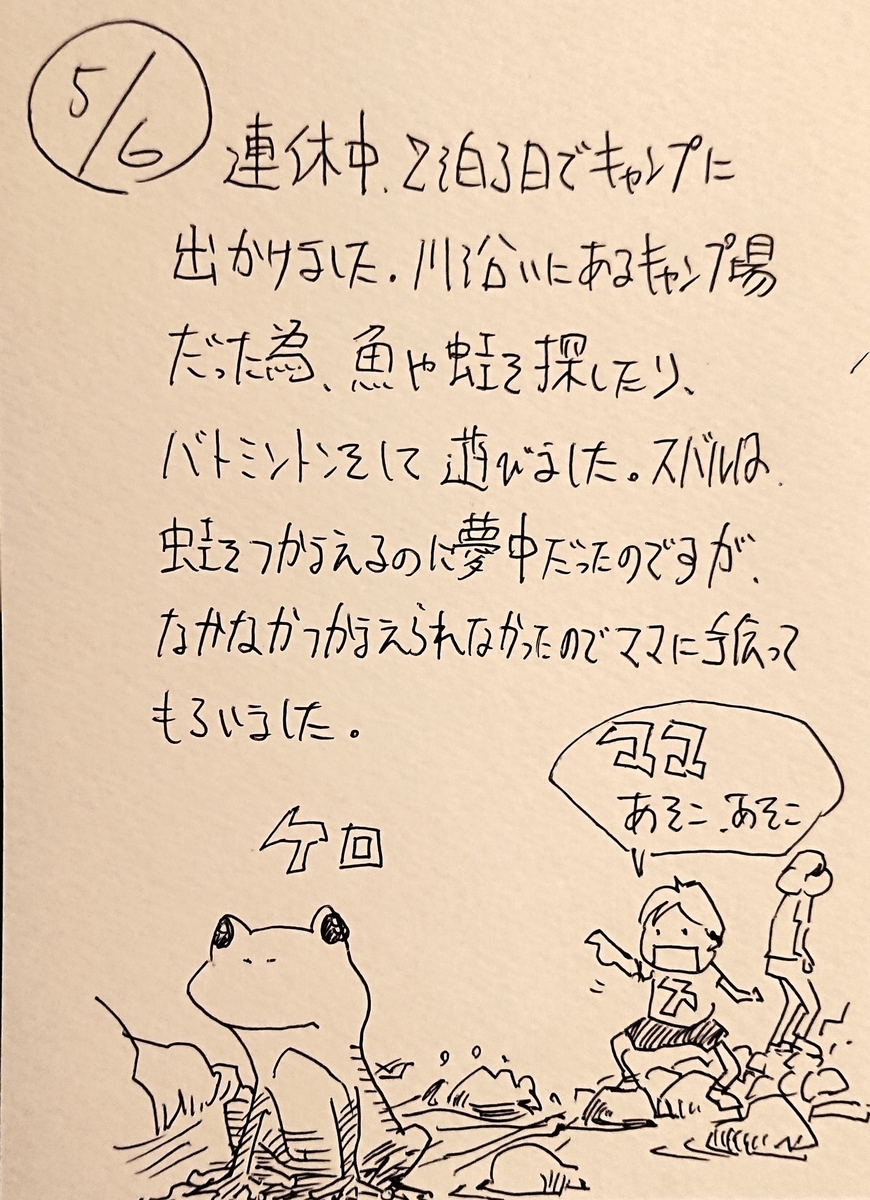 5/6
連休中、2泊3日でキャンプに
出かけました。川沿いにあるキャンプ場
だった為、魚や蛙を探したり、
バトミントンをして遊びました。スバルは、
蛙をつかまえるのに夢中だったのですが、
なかなかつかまえられなかったのでママに手伝って
もらいました。
ママ
あそこ、あそこ
ケロ
ス